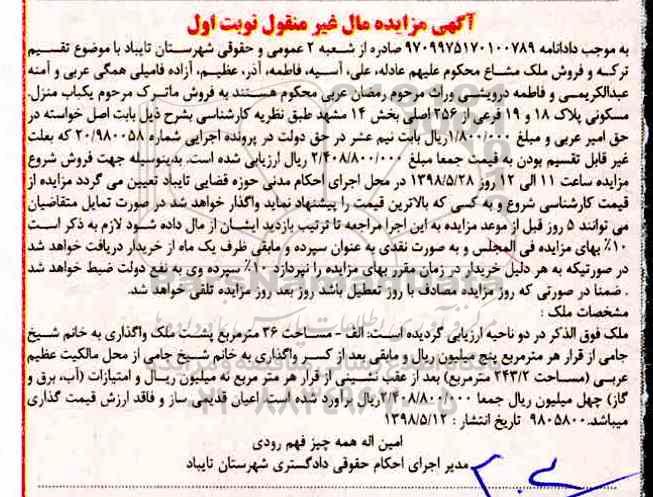 آگهی مزایده مال غیر منقول نوبت اول
به موجب دادنامه ۹۷۰۹۹۷۵۱۷۰۱۰۰۷۸۹ صادره از شعبه ۲ عمومی و حقوقی شهرستان تایباد با موضوع تقسیم
ترکه و فروش ملک مشاع محکوم علیهم عادله، علی، آسیه، فاطمه، آذر، عظیم، آزاده فامیلی همگی عربی و آمنه
عبدالکریمی و فاطمه درویشی وراث مرحوم رمضان عربی محکوم هستند به فروش ماترک مرحوم یکباب منزل
مسکونی پلاک ۱۸ و ۱۹ فرعی از ۲۵۶ اصلی بخش ۱۴ مشهد طبق نظریه کارشناسی بشرح ذیل بابت اصل خواسته در
حق امیر عربی و مبلغ ۱/۸۰۰/۰۰۰ریال بابت نیم عشر در حق دولت در پرونده اجرایی شماره ۲۰/۹۸۰۰۵۸ که بعلت
غیر قابل تقسیم بودن به قیمت جمعا مبلغ ۲/۴۰۸/۸۰۰/۰۰۰ ریال ارزیابی شده است. بدینوسیله جهت فروش شروع
مزایده ساعت ۱۱ الی ۱۲ روز ۱۳۹۸/۵/۲۸ در محل اجرای احکام مدنی حوزه قضایی تایباد تعیین می گردد مزایده از
قیمت کارشناسی شروع و به کسی که بالاترین قیمت را پیشنهاد نماید واگذار خواهد شد در صورت تمایل متقاضیان
می توانند ۵ روز قبل از موعد مزایده به این اجرا مراجعه تا ترتیب بازدید ایشان از مال داده شود لازم به ذکر است
۱۰٪ بهای مزایده فی المجلس و به صورت نقدی به عنوان سپرده و مابقی ظرف یک ماه از خریدار دریافت خواهد شد
در صورتیکه به هر دلیل خریدار در زمان مقرر بهای مزایده را نپردازد ۱۰٪ سپرده وی به نفع دولت ضبط خواهد شد
. ضمنا در صورتی که روز مزایده مصادف با روز تعطیل باشد روز بعد روز مزایده تلقی خواهد شد.
مشخصات ملک :
ملک فوق الذکر در دو ناحیه ارزیابی گردیده است: الف - مساحت ۳۶ مترمربع پشت ملک واگذاری به خانم شیخ
جامی از قرار هر مترمربع پنج میلیون ریال و مابقی بعد از کسر واگذاری به خانم شیخ جامی از محل مالکیت عظیم
عربی (مساحت ۲۴۳/۲ مترمربع) بعد از عقب نشینی از قرار هر متر مربع نه میلیون ریال و امتیازات (آب، برق و
گاز) چهل میلیون ریال جمعا ۲/۴۰۸/۸۰۰/۰۰۰ریال برآورد شده است. اعیان قدیمی ساز و فاقد ارزش قیمت گذاری
میباشد. ۹۸۰۵۸۰۰ تاریخ انتشار : ۱۳۹۸/۵/۱۲
امین اله همه چیز فهم رودی
مدیر اجرای احکام حقوقی دادگستری شهرستان تایباد